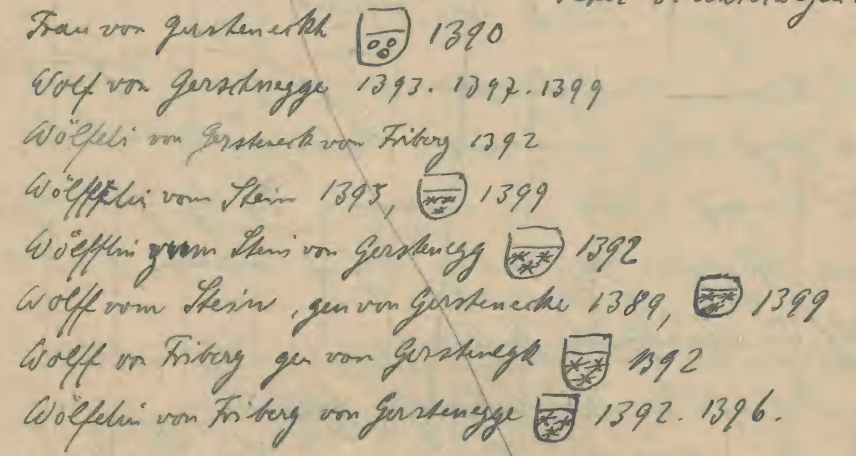 Frau von Gersteneckh 1390
Wolf von Gerstnegge 1393. 1397. 1399
Wölfeli von Gersteneck von Friberg 1392
Wölffelin vom Stein 1393, 1399
Wölfflin zum Stein von Gerstenegg 1392
Wolff vom Stein, gen von Gerstenecke 1389, 1399
Wolff von Friberg gen von Gerstenegk 1392
Wölfelin von Friberg von Gerstenegge 1392. 1396.